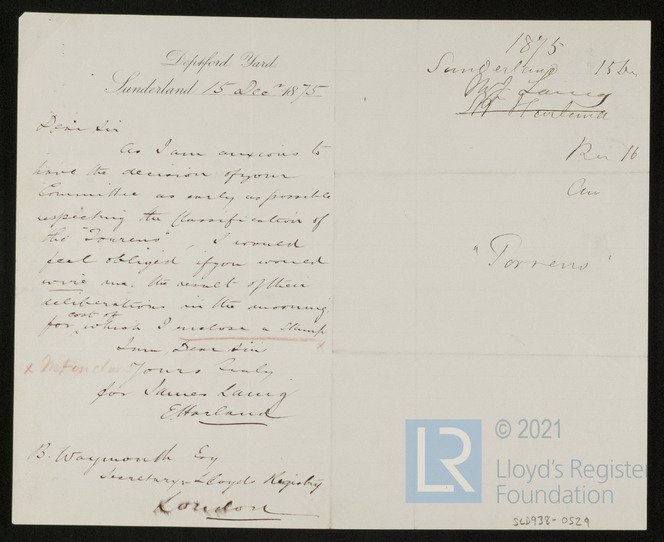 Deptford Yard
Sunderland 15 Decr 1875
Dear Sir
As I am anxious to
have the decision of your
Committee as early as possible
respecting the Classification of
the "Torrens", I would
feel obliged if you would
wire me the result of their
deliberations in the morning
for cost of which I enclose a stamp x
I am, Dear Sir
x Not enclosed Yours truly
for James Laing
E Harland
B. Waymouth Esq
Secretary Lloyds Registry
London
1875
Sunderland 15 Dec
Mr Laing
Mr Harland
Rec 16
"Torrens"
LR © 2021
Lloyd's Register
Foundation
SLD938-0529